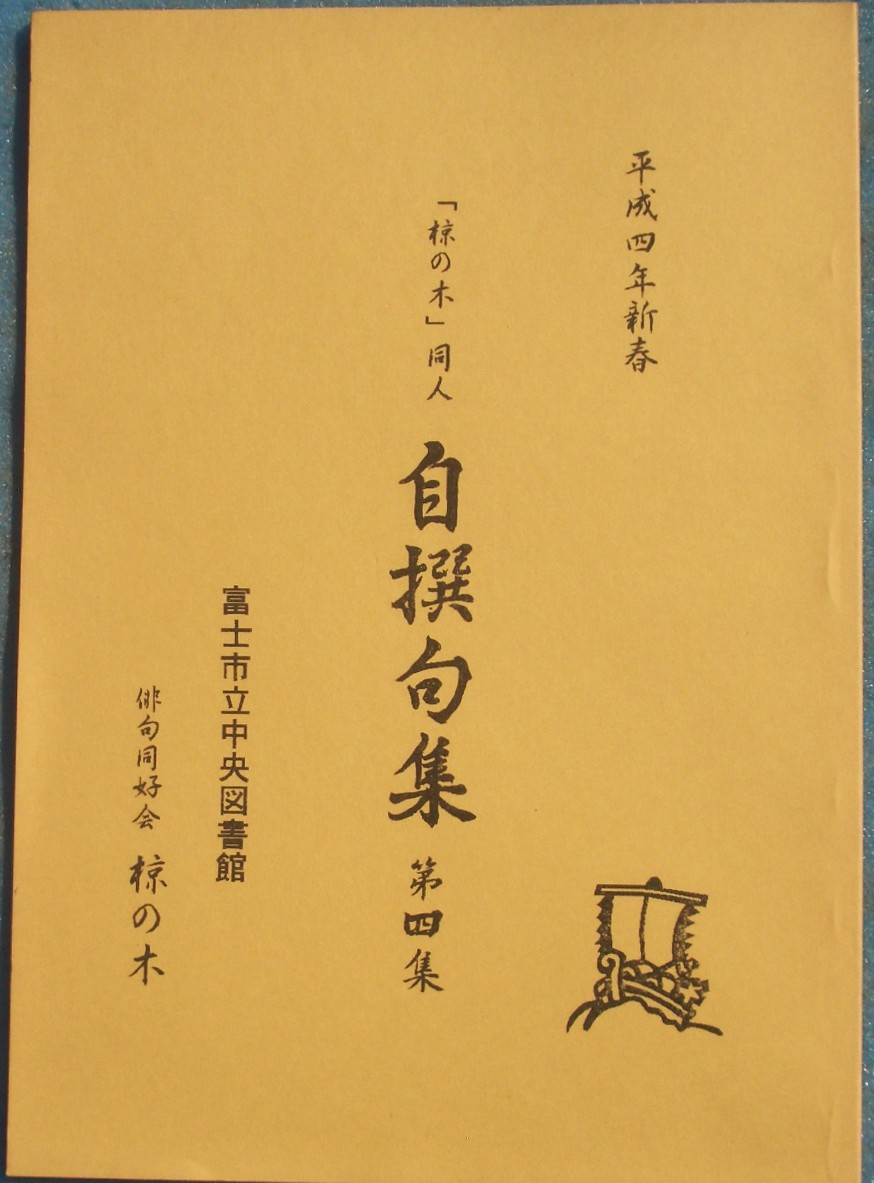 平成四年新春
「椋の木」同人 自撰句集 第四集
富士市立中央図書館
俳句同好会 椋の木